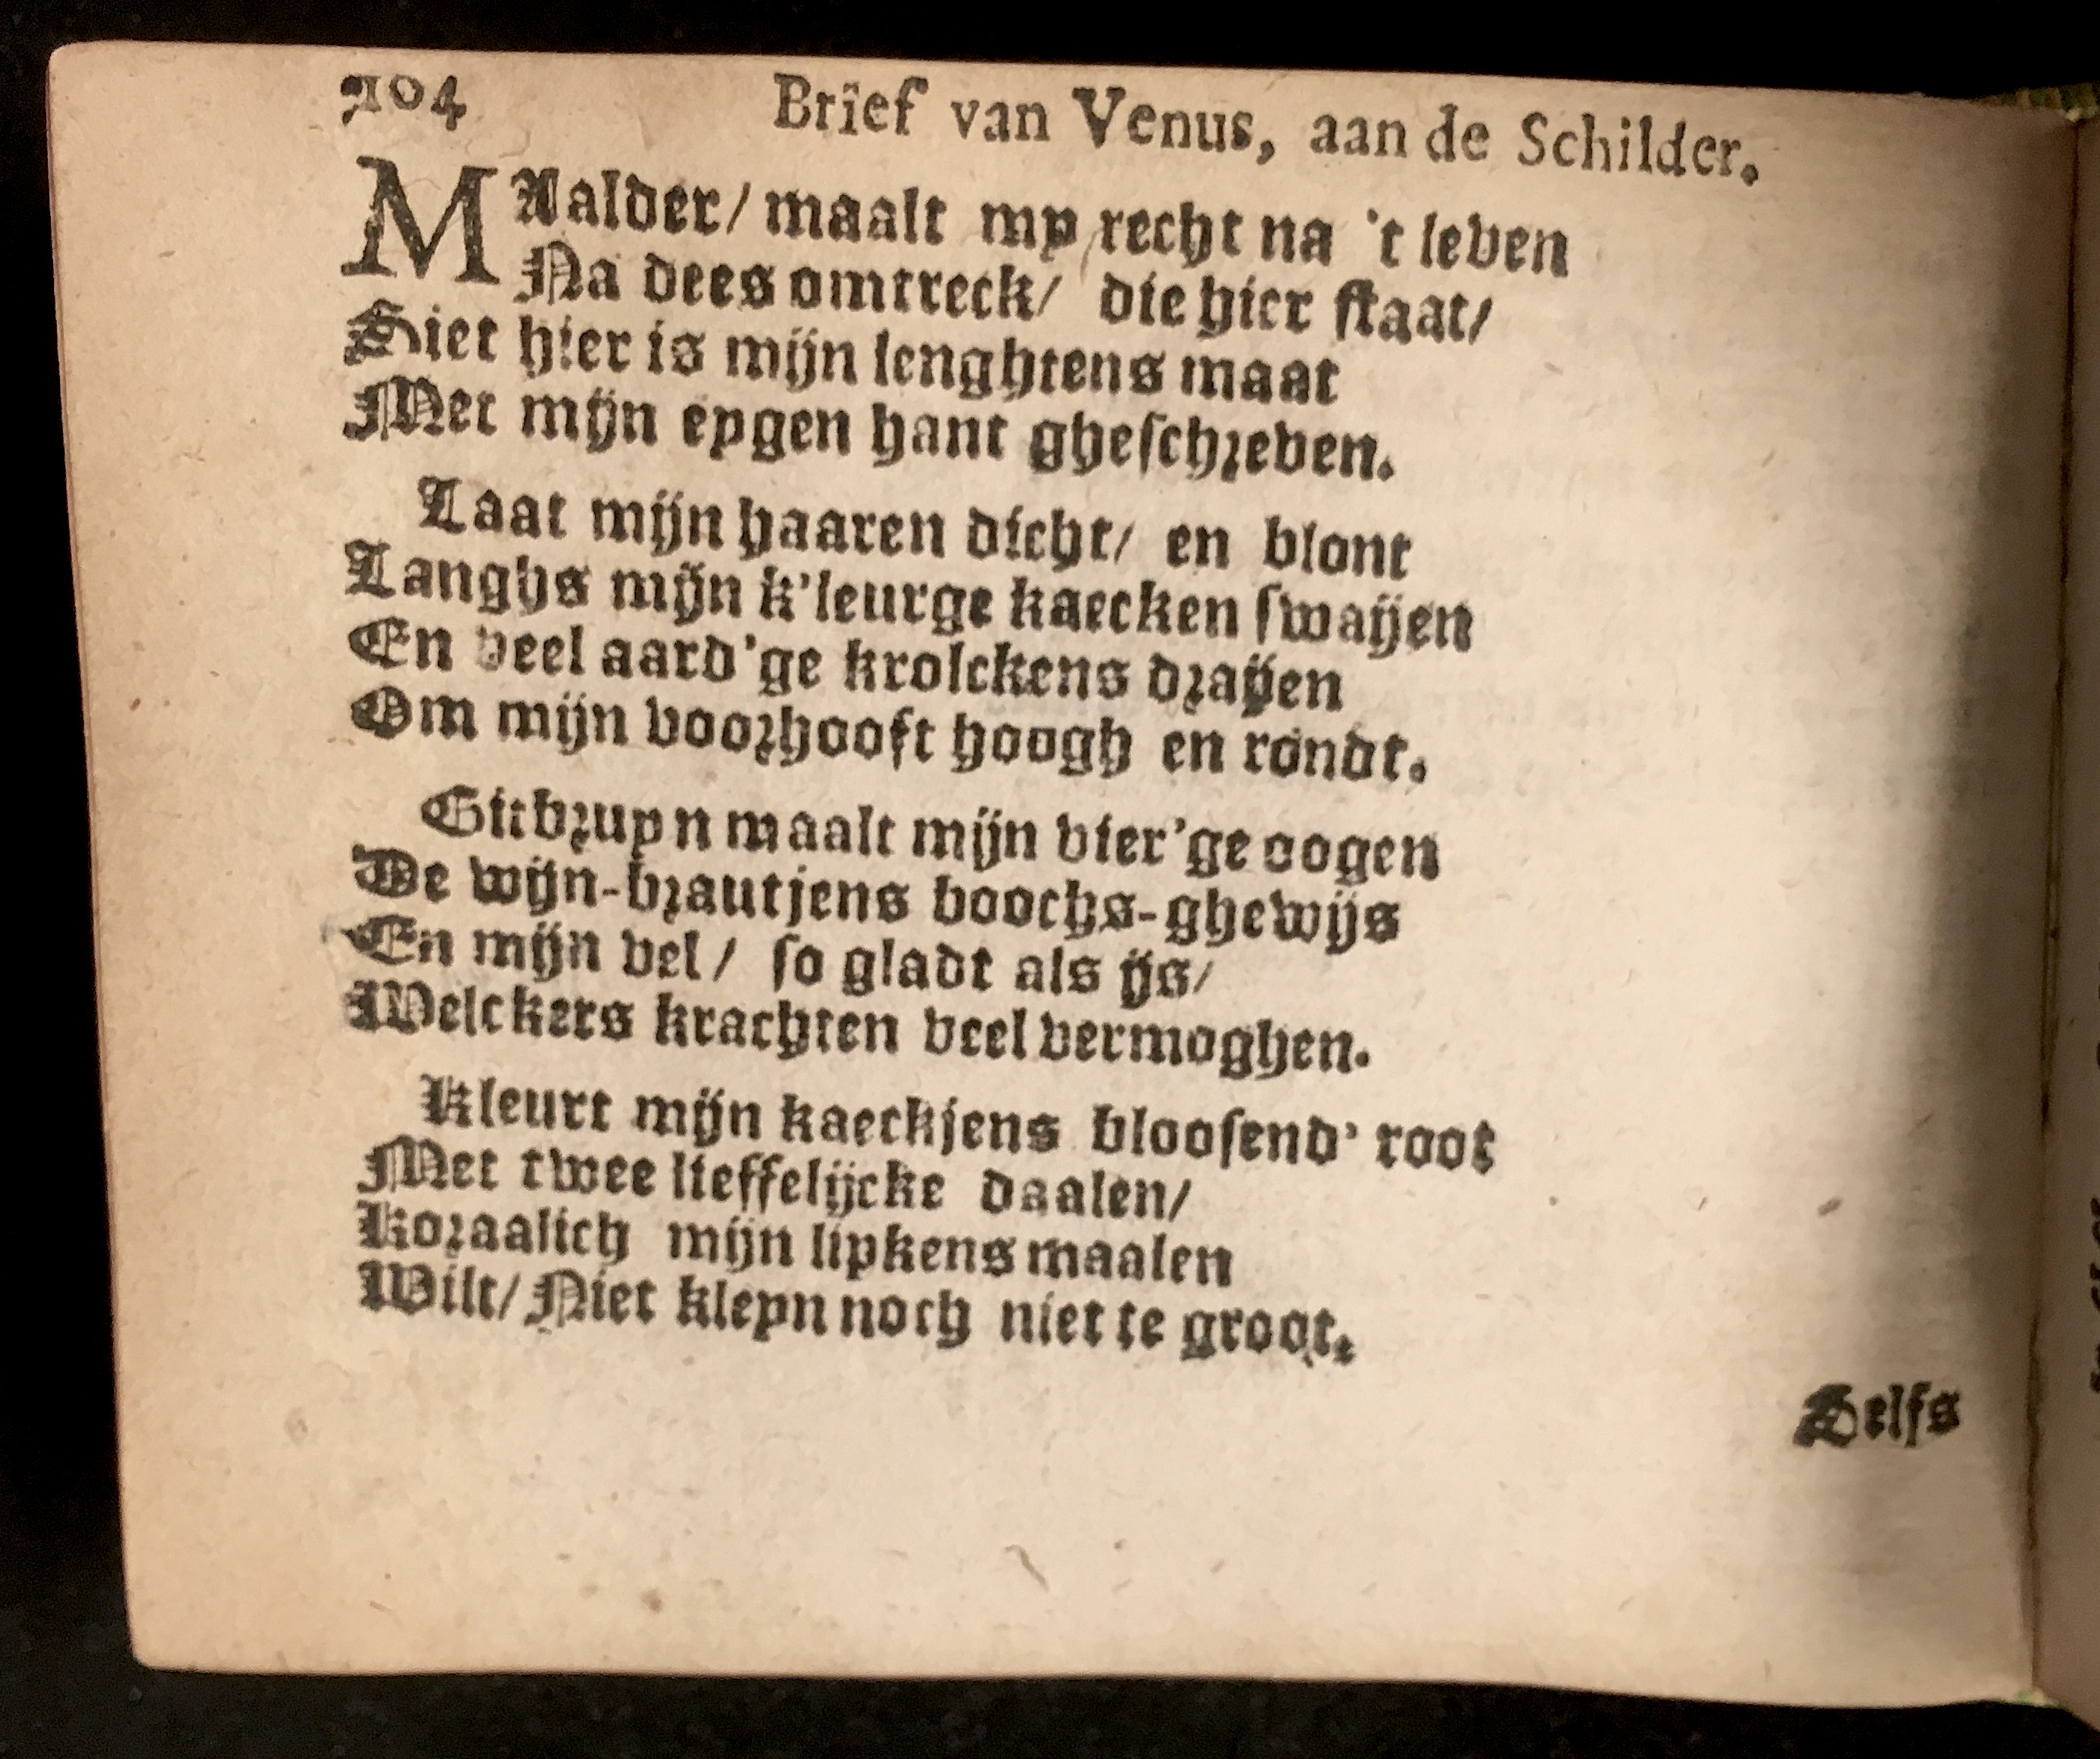 104 Brief van Venus, aan de Schilder.
MAalder/ maalt my recht na 't leven
Na dees omtreck/ die hier staat/
Siet hier is mijn lenghtens maat
Met mijn eygen hant gheschreven.
Laat mijn haaren dicht/ en blont
Langhs mijn k'leurge kaecken swaijen
En veel aard'ge krolckens draijen
Om mijn voorhooft hoogh en rondt.
Gitbruyn maalt mijn vier'ge oogen
De wijn-brautjens boochs-ghewijs
En mijn vel/ so gladt als ijs/
Welckers krachten veel vermoghen.
Kleurt mijn kaeckjens bloosend' root
Met twee lieffelijcke daalen/
Koraalich mijn lipkens maalen
Wilt/ Niet kleyn noch niet te groot.
Selfs